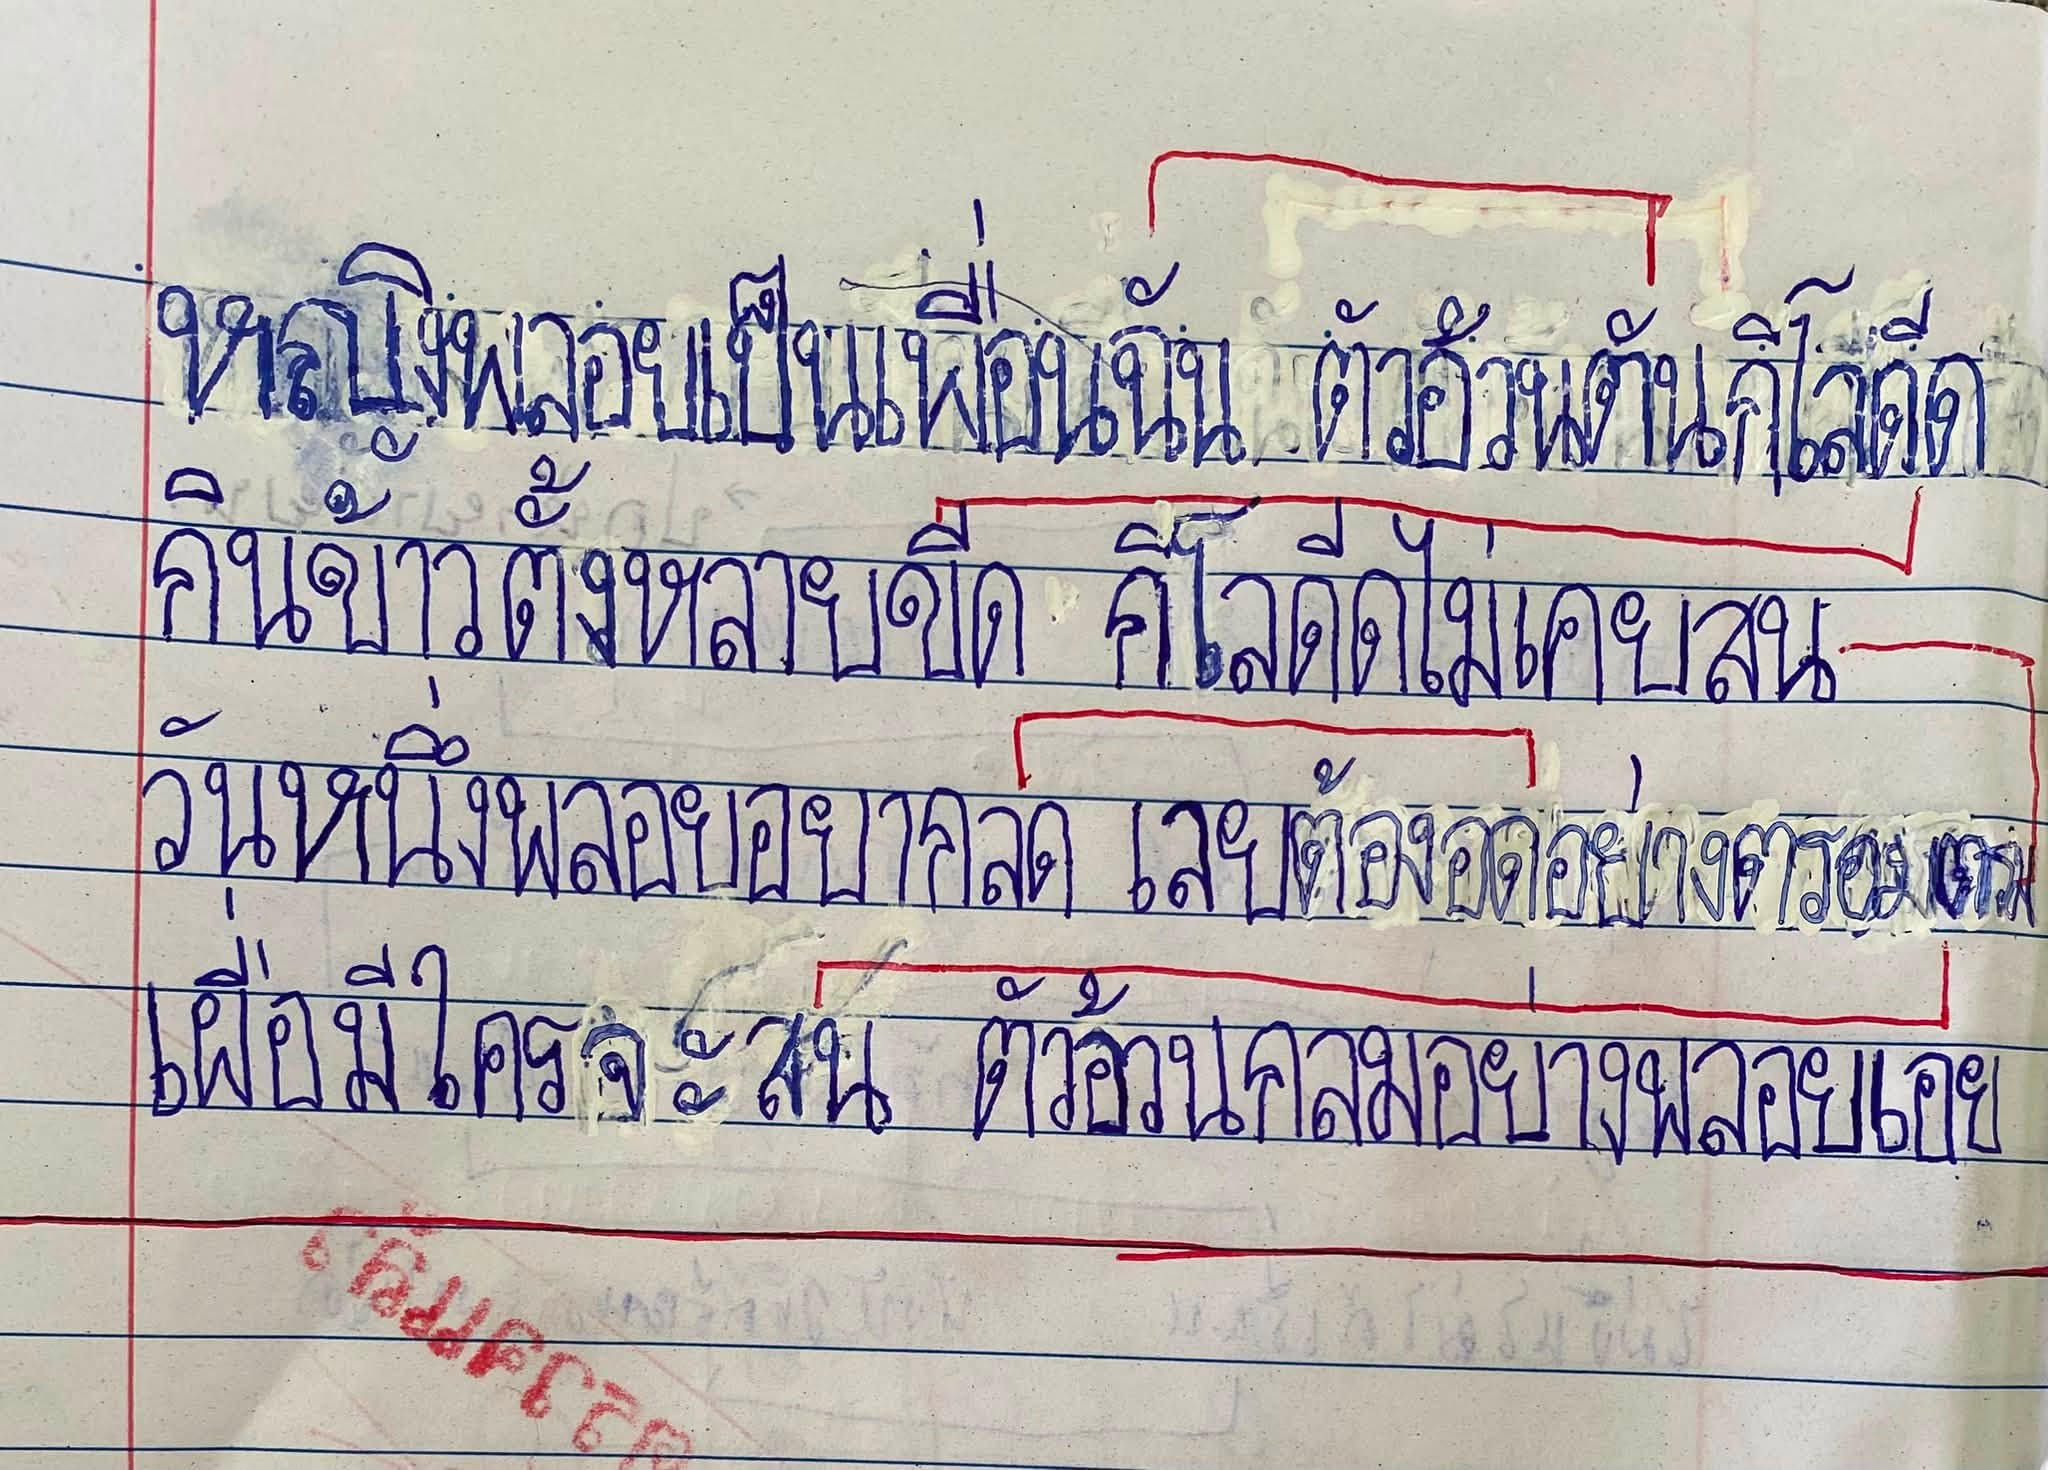 หญิงพลอยเป็นเพื่อนฉัน ตัวอ้วนตันกีโลดีด
กินข้าวตั้งหลายขีด กีโลดีดไม่เคยสน
วันหนึ่งพลอยอยากลด เลยต้องอดอย่างตรอมตรม
เผื่อมีใครจะสน ตัวอ้วนกลมอย่างพลอยเอย